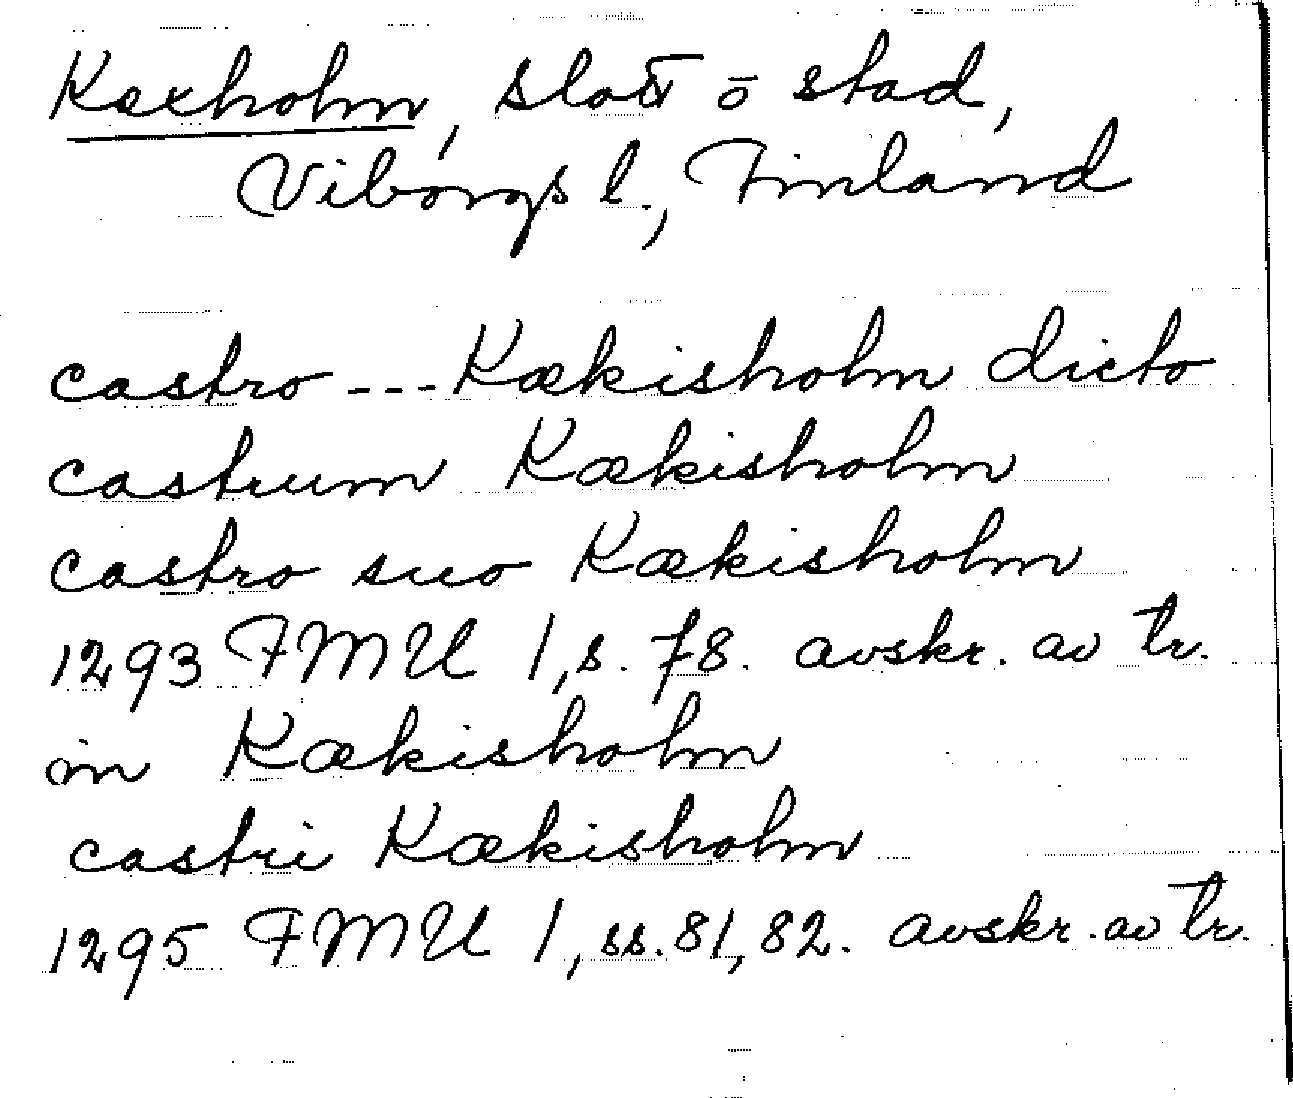 Kexholm, slott ō stad,
Viborgs l., Finland
castro --- Kækisholm dicto
castrum Kækisholm
castro suo Kækisholm
1293 FMU 1, s. 78. avskr. av tr.
in Kækisholm
castri Kækisholm
1295 FMU 1, ss. 81, 82. avskr. av tr.